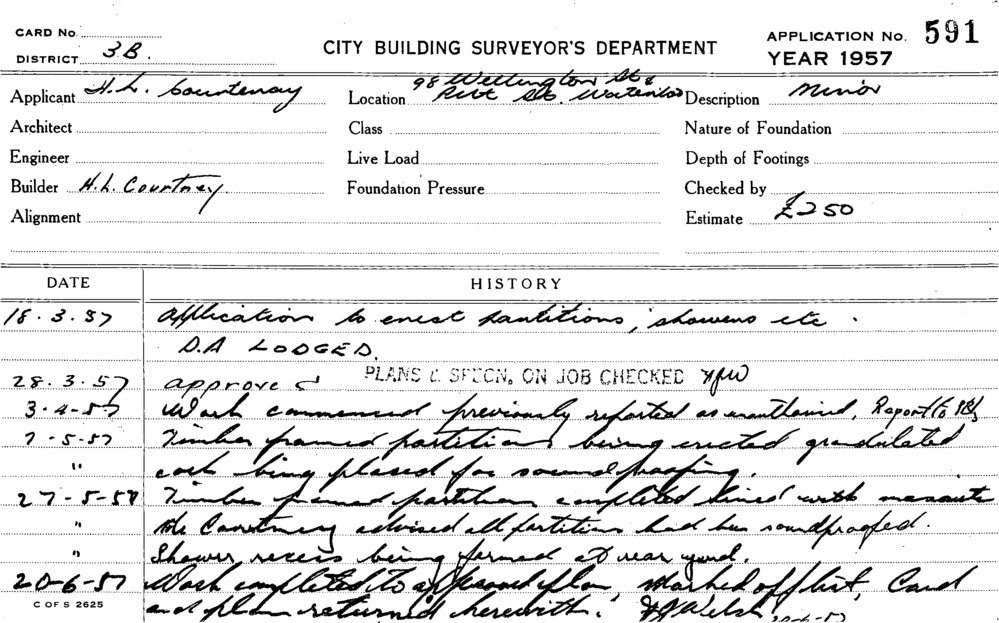 CARD No.
DISTRICT 3B.
CITY BUILDING SURVEYOR'S DEPARTMENT
APPLICATION No. 591
YEAR 1957
Applicant H. L. Courtenay
Location 98 Wellington St &
St. Waterloo
Description Minor
Architect
Class
Nature of Foundation
Engineer
Live Load
Depth of Footings
Builder H. L. Courtney.
Foundation Pressure
Checked by
Alignment
Estimate £250
DATE
HISTORY
18.3.57 Application to erect partitions, showers etc.
D.A LODGED.
28.3.57 approved PLANS & SPECN. ON JOB CHECKED
3-4-57 Work commenced previously reported as unauthorised. Report to
7-5-57 Timber framed partitions being erected granulated
" cork being placed for soundproofing.
27-5-57 Timber framed partitions completed lined with masonite
" Mr Courtney advised all partitions had been soundproofed.
" Shower recess being formed at rear yard.
20-6-57 Work completed to approved plan, marked off list, Card
and plan returned herewith. Welsh 20-6-57
C OF S 2625